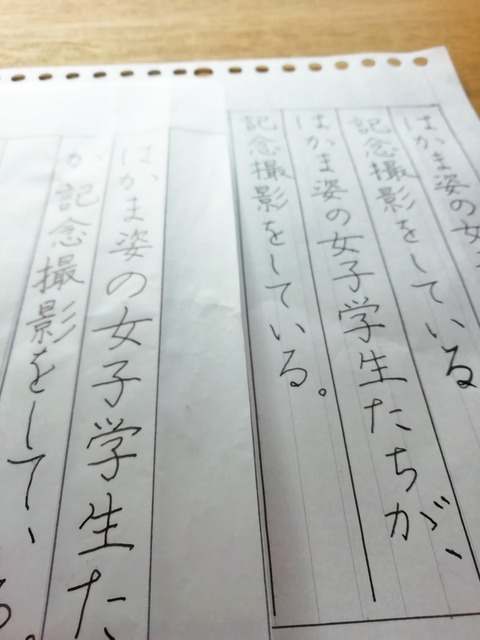 はかま姿の女
記念撮影をしている
はかま姿の女子学生たちが、
記念撮影をしている。
はかま姿の女子学生た
が記念撮影をしている。